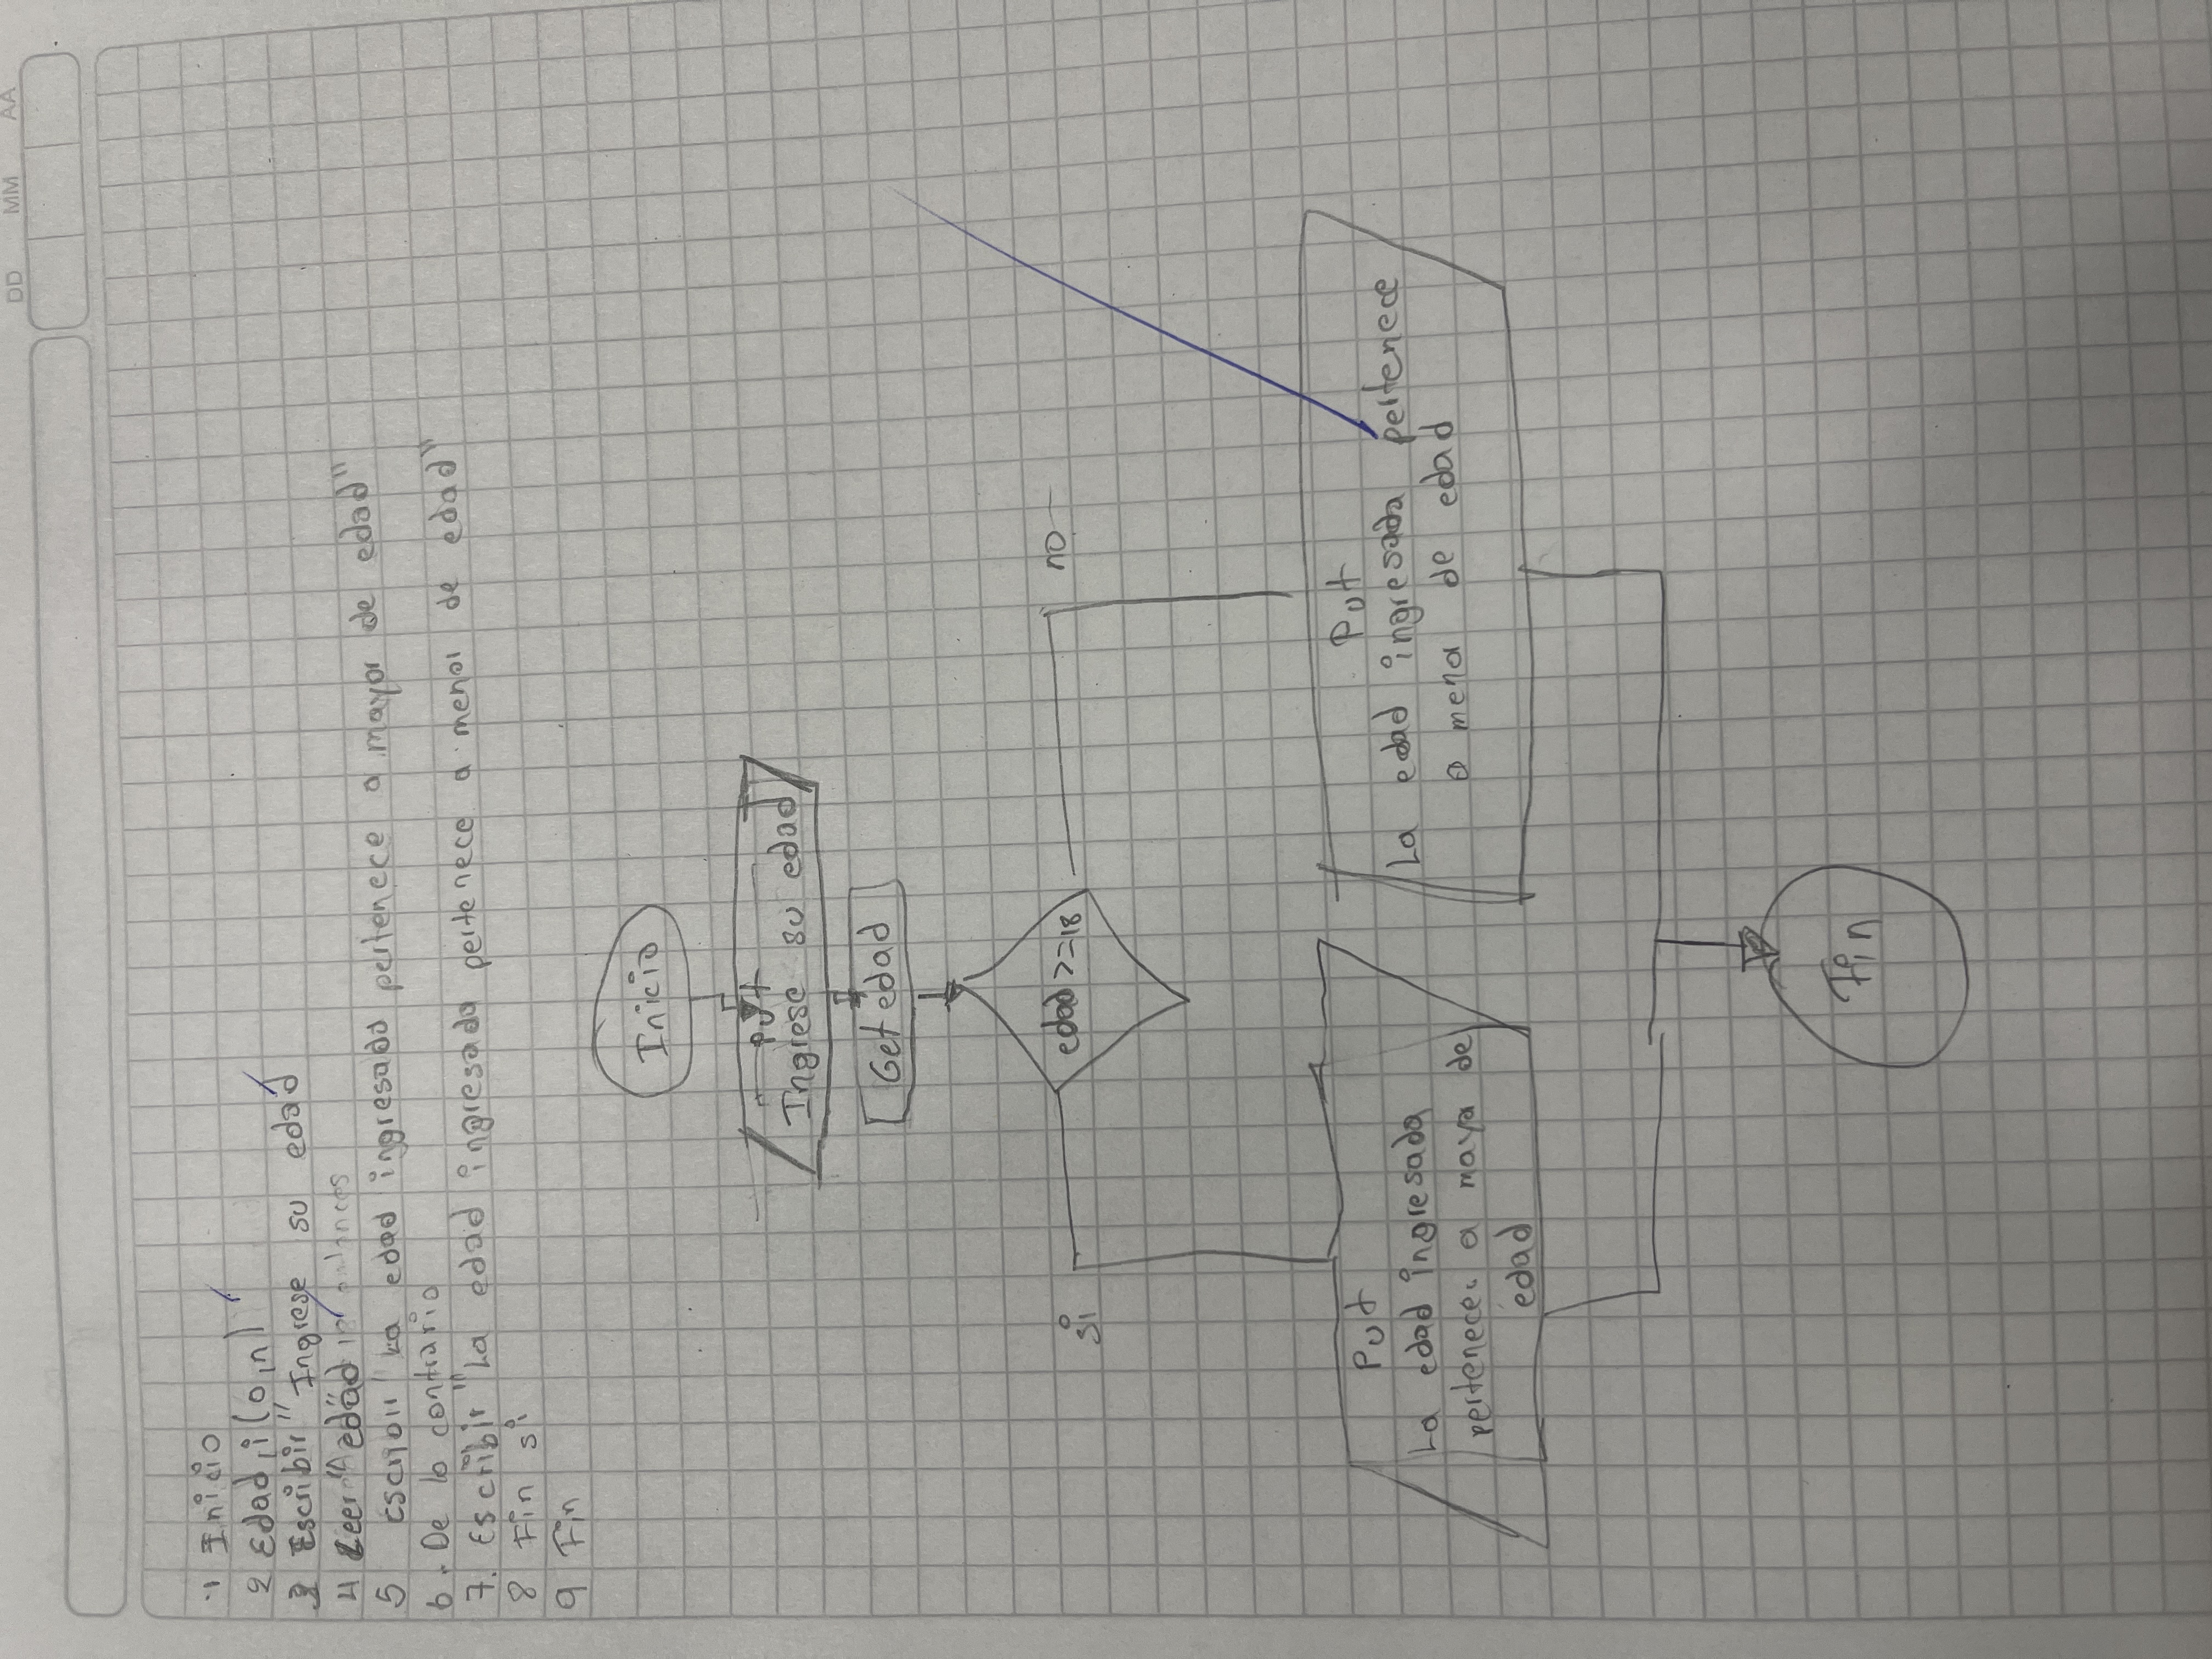 DD MM AA
1 Inicio
2 Edad, i (0,n)
3 Escribir "Ingrese su edad
4 Leer "edad"
5 Escribir "La edad ingresada pertenece a mayor de edad"
6. De lo contrario
7. Escribir "La edad ingresada pertenece a menor de edad"
8 Fin si
9 Fin
Inicio
Put
Ingrese su edad
Get edad
edad >=18
si
no
Put
La edad ingresada
pertenece a mayor de
edad
Put
La edad ingresada pertenece
a menor de edad
Fin